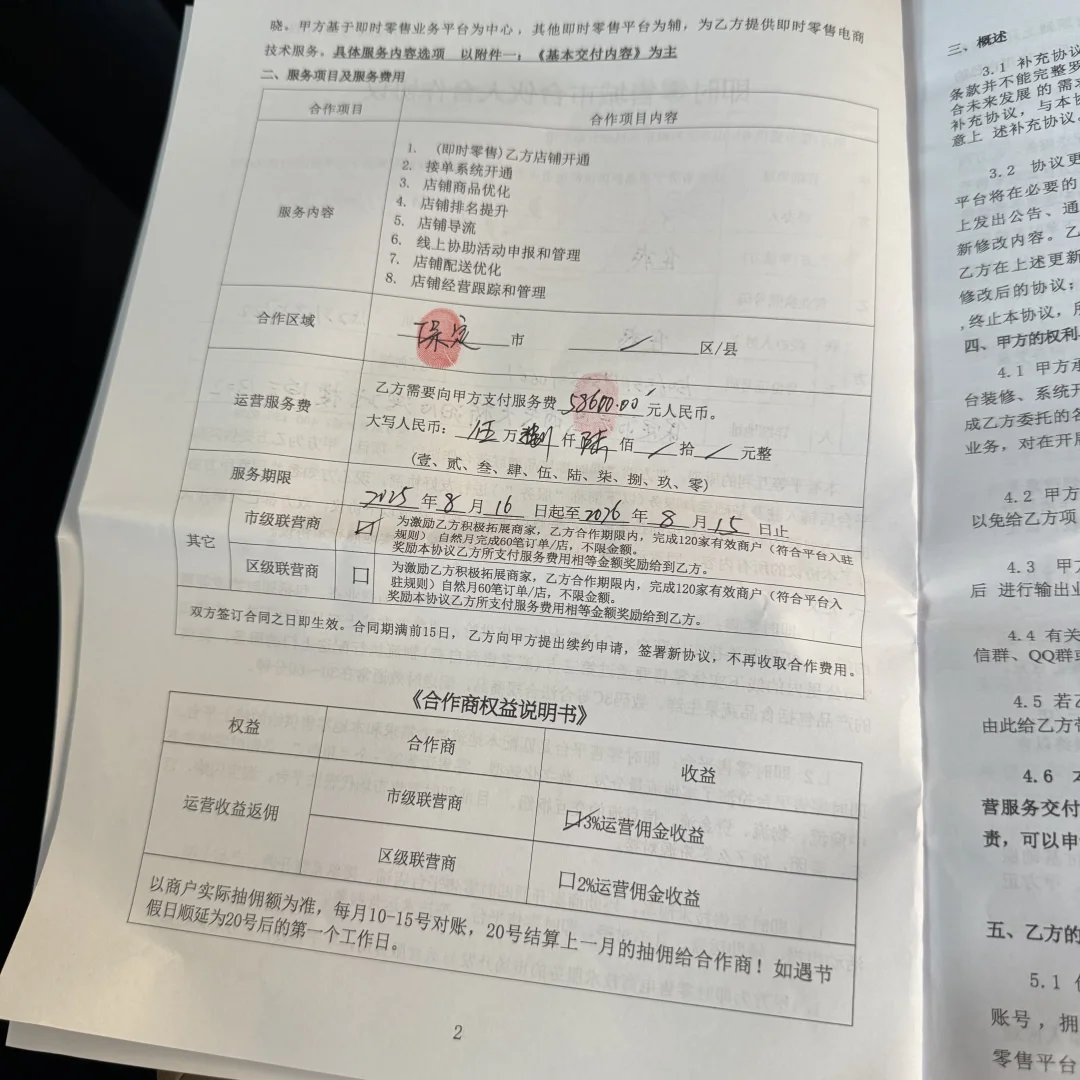 晓。甲方基于即时零售业务平台为中心，其他即时零售平台为辅，为乙方提供即时零售电商
技术服务。具体服务内容选项 以附件一，《基本交付内容》为主
二、服务项目及服务费用
合作项目 合作项目内容
服务内容
1. (即时零售)乙方店铺开通
2. 接单系统开通
3. 店铺商品优化
4. 店铺排名提升
5. 店铺导流
6. 线上协助活动申报和管理
7. 店铺配送优化
8. 店铺经营跟踪和管理
合作区域 保定 市 / 区/县
运营服务费
乙方需要向甲方支付服务费 58600.00 元人民币。
大写人民币： 伍 万 捌 仟 陆 佰 / 拾 / 元整
(壹、贰、叁、肆、伍、陆、柒、捌、玖、零)
服务期限 2025 年 8 月 16 日起至 2026 年 8 月 15 日止
其它
市级联营商 ☑
为激励乙方积极拓展商家，乙方合作期限内，完成120家有效商户（符合平台入驻
规则） 自然月完成60笔订单/店，不限金额。
奖励本协议乙方所支付服务费用相等金额奖励给到乙方。
区级联营商 □
为激励乙方积极拓展商家，乙方合作期限内，完成120家有效商户（符合平台入
驻规则）自然月60笔订单/店，不限金额。
奖励本协议乙方所支付服务费用相等金额奖励给到乙方。
双方签订合同之日即生效。合同期满前15日，乙方向甲方提出续约申请，签署新协议，不再收取合作费用。
《合作商权益说明书》
权益 合作商 收益
运营收益返佣
市级联营商 ☑3%运营佣金收益
区级联营商 □2%运营佣金收益
以商户实际抽佣额为准，每月10-15号对账，20号结算上一月的抽佣给合作商！如遇节
假日顺延为20号后的第一个工作日。
2
三、概述
3.1 补充协议
条款并不能完整罗
合未来发展的需求
补充协议，与本协
意上 述补充协议。
3.2 协议更
平台将在必要的
上发出公告、通
新修改内容。乙
乙方在上述更新
修改后的协议；
,终止本协议，
四、甲方的权利
4.1 甲方承
台装修、系统开
成乙方委托的各
业务，对在开展
4.2 甲方
以免给乙方项
4.3 甲方
后 进行输出业
4.4 有关
信群、QQ群或
4.5 若乙
由此给乙方带
4.6 本
营服务交付
责，可以申
五、乙方的
5.1
账号，拥
零售平台